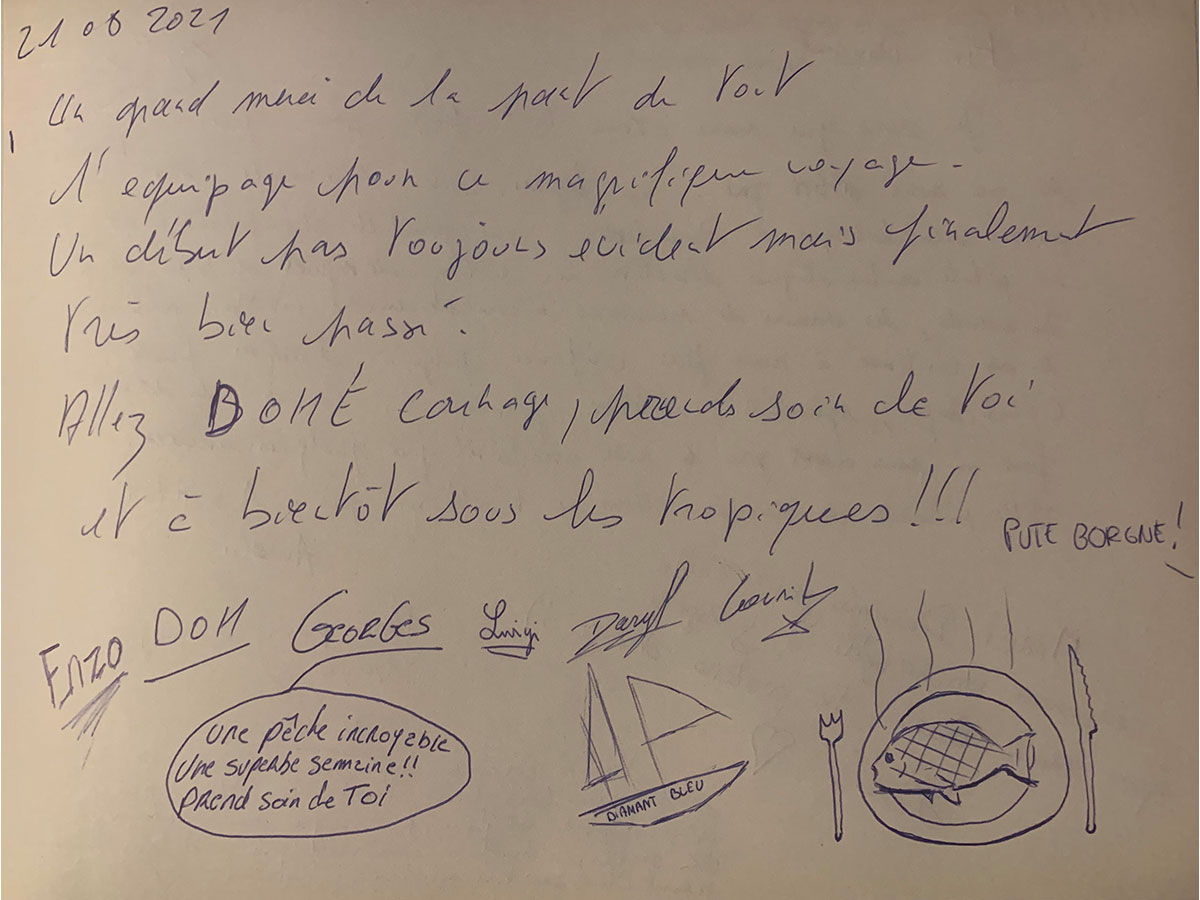 21 08 2021
Un grand merci de la part de tout
l'equipage pour ce magnifique voyage.
Un début pas toujours evident mais finalement
très bien passé.
Allez DOMÉ courage, prends soin de toi
et à bientôt sous les tropiques !!!
PUTE BORGNE!
Enzo DOM GEORGES Luigi Daryl
une pêche incroyable
Une superbe semaine!!
prend soin de Toi
DIAMANT BLEU